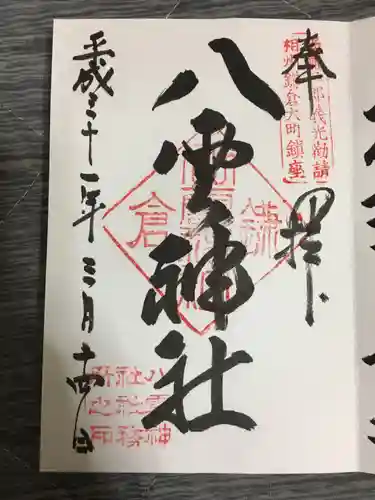 奉拝
相州鎌倉大町鎮座
八雲神社
鎌倉
八雲神
社社務
所之印
平成三十一年三月十四日